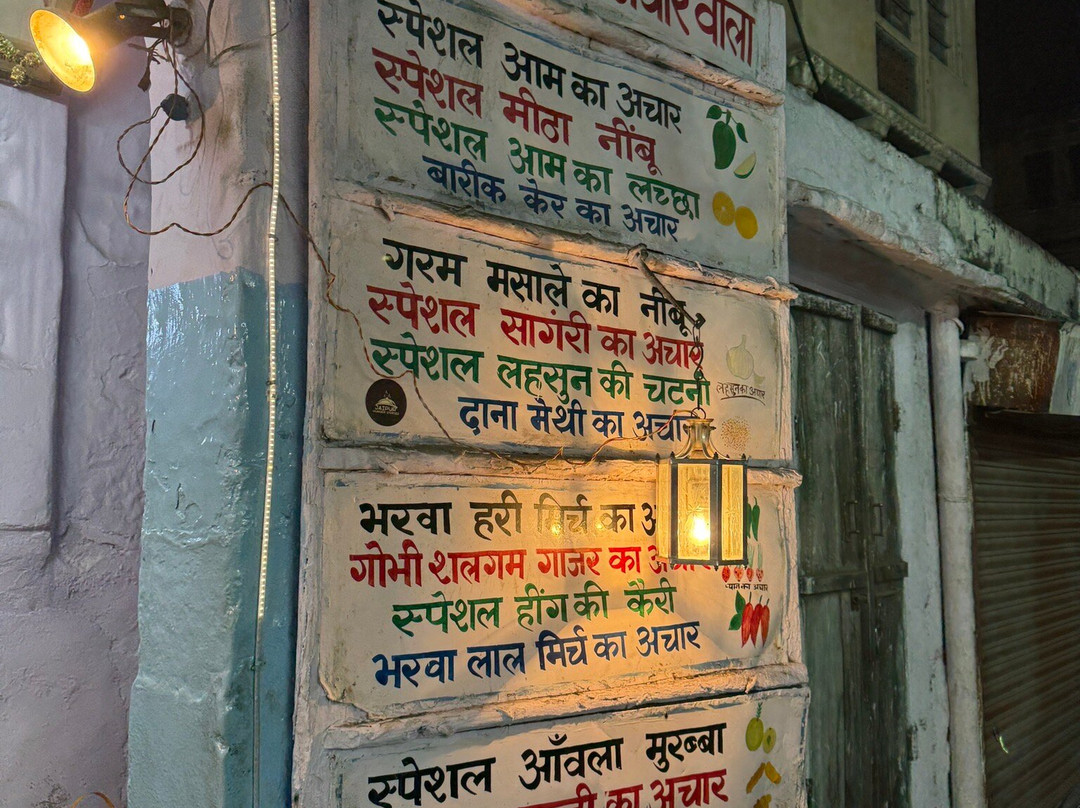 अचार वाला
स्पेशल आम का अचार
स्पेशल मीठा नींबू
स्पेशल आम का लच्छा
बारीक केर का अचार
गरम मसाले का नींबू
स्पेशल सागंरी का अचार
स्पेशल लहसुन की चटनी
लहसुन का अचार
JAIPUR
दाना मैथी का अचार
भरवा हरी मिर्च का
गोभी शलगम गाजर का
का अचार
स्पेशल हींग की कैरी
भरवा लाल मिर्च का अचार
स्पेशल आँवला मुरब्बा
का अचार